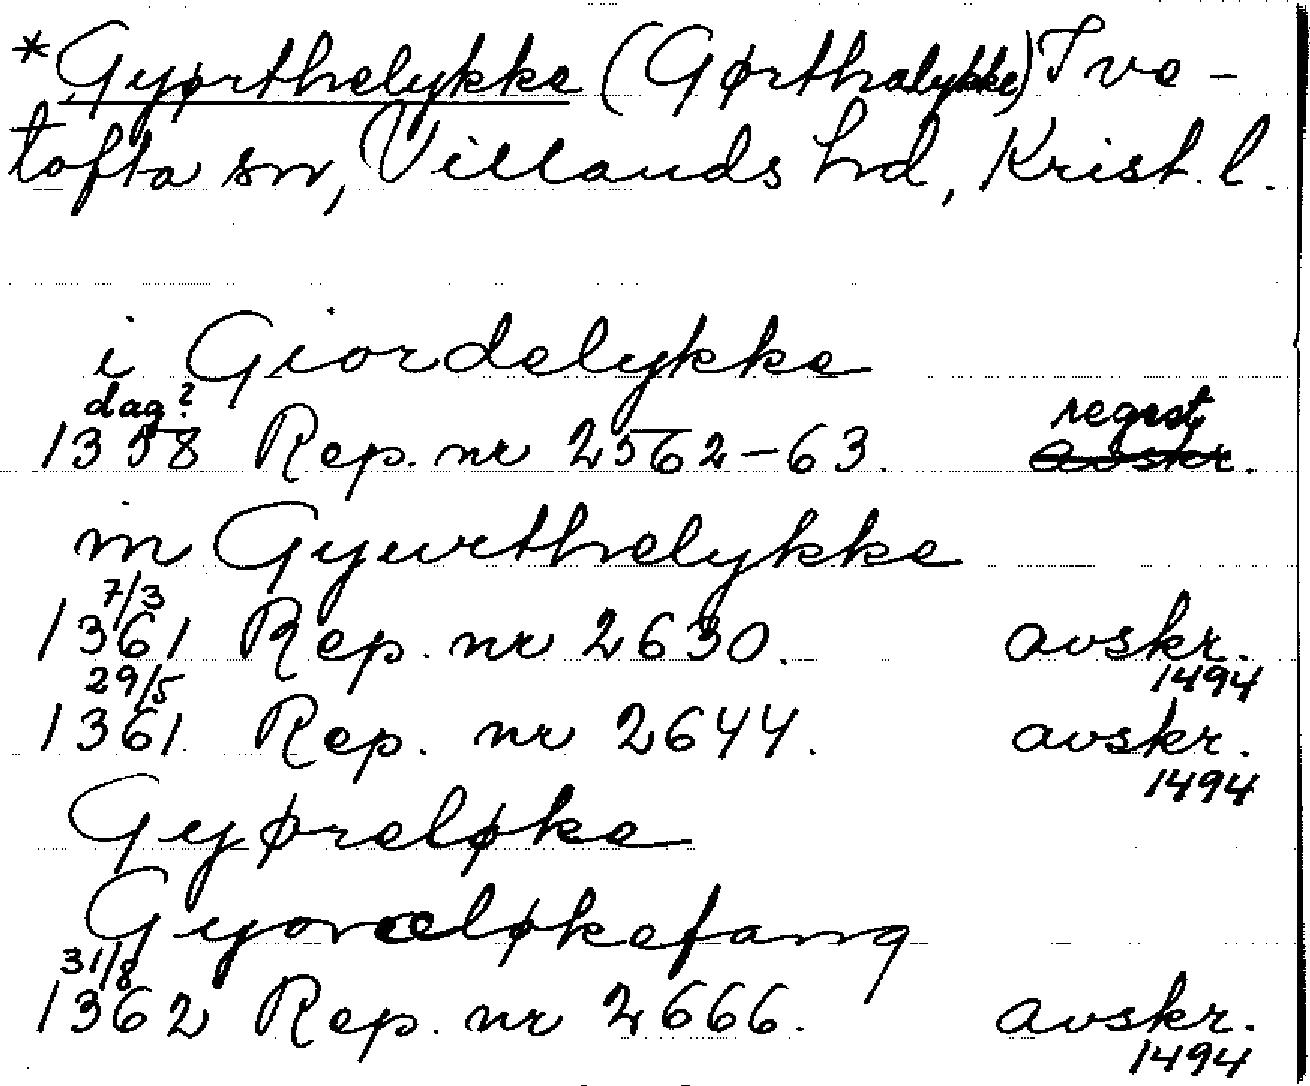 *Gyørthelykke (Gørthalykke) Ive-
tofta sn, Villands hd, Krist. l.
i Giordelykke
dag?
1358 Rep. nr 2562-63. regest avskr.
in Gyurthelykke
7/3
1361 Rep. nr 2630. avskr. 1494
29/5
1361 Rep. nr 2644. avskr. 1494
Gyøreløke
Gyoreløkefang
31/8
1362 Rep. nr 2666. avskr. 1494